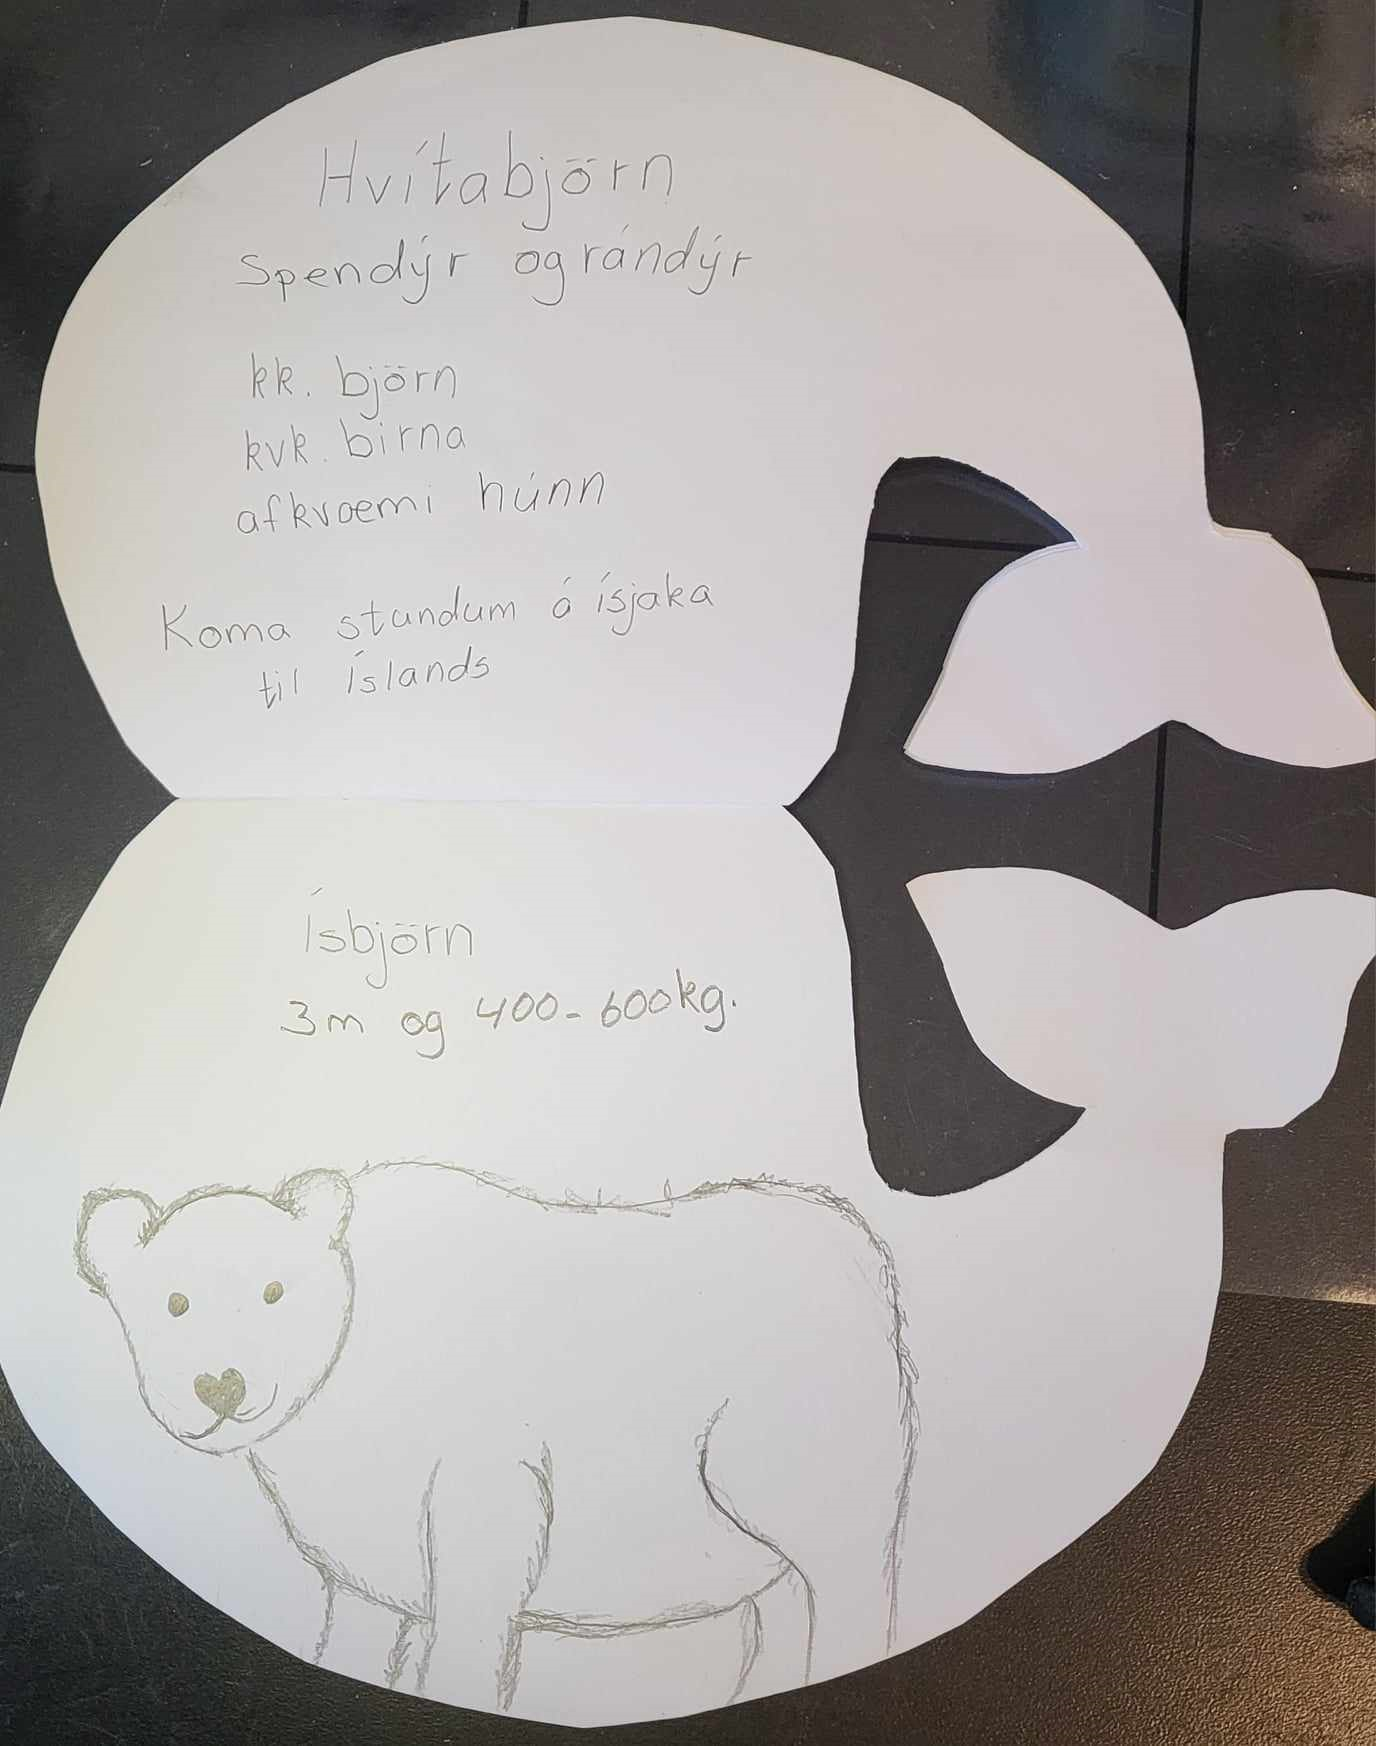 Hvítabjörn
Spendýr og rándýr
kk. björn
kvk. birna
afkvæmi húnn
Koma stundum á ísjaka
til Íslands
Ísbjörn
3m og 400-600kg.